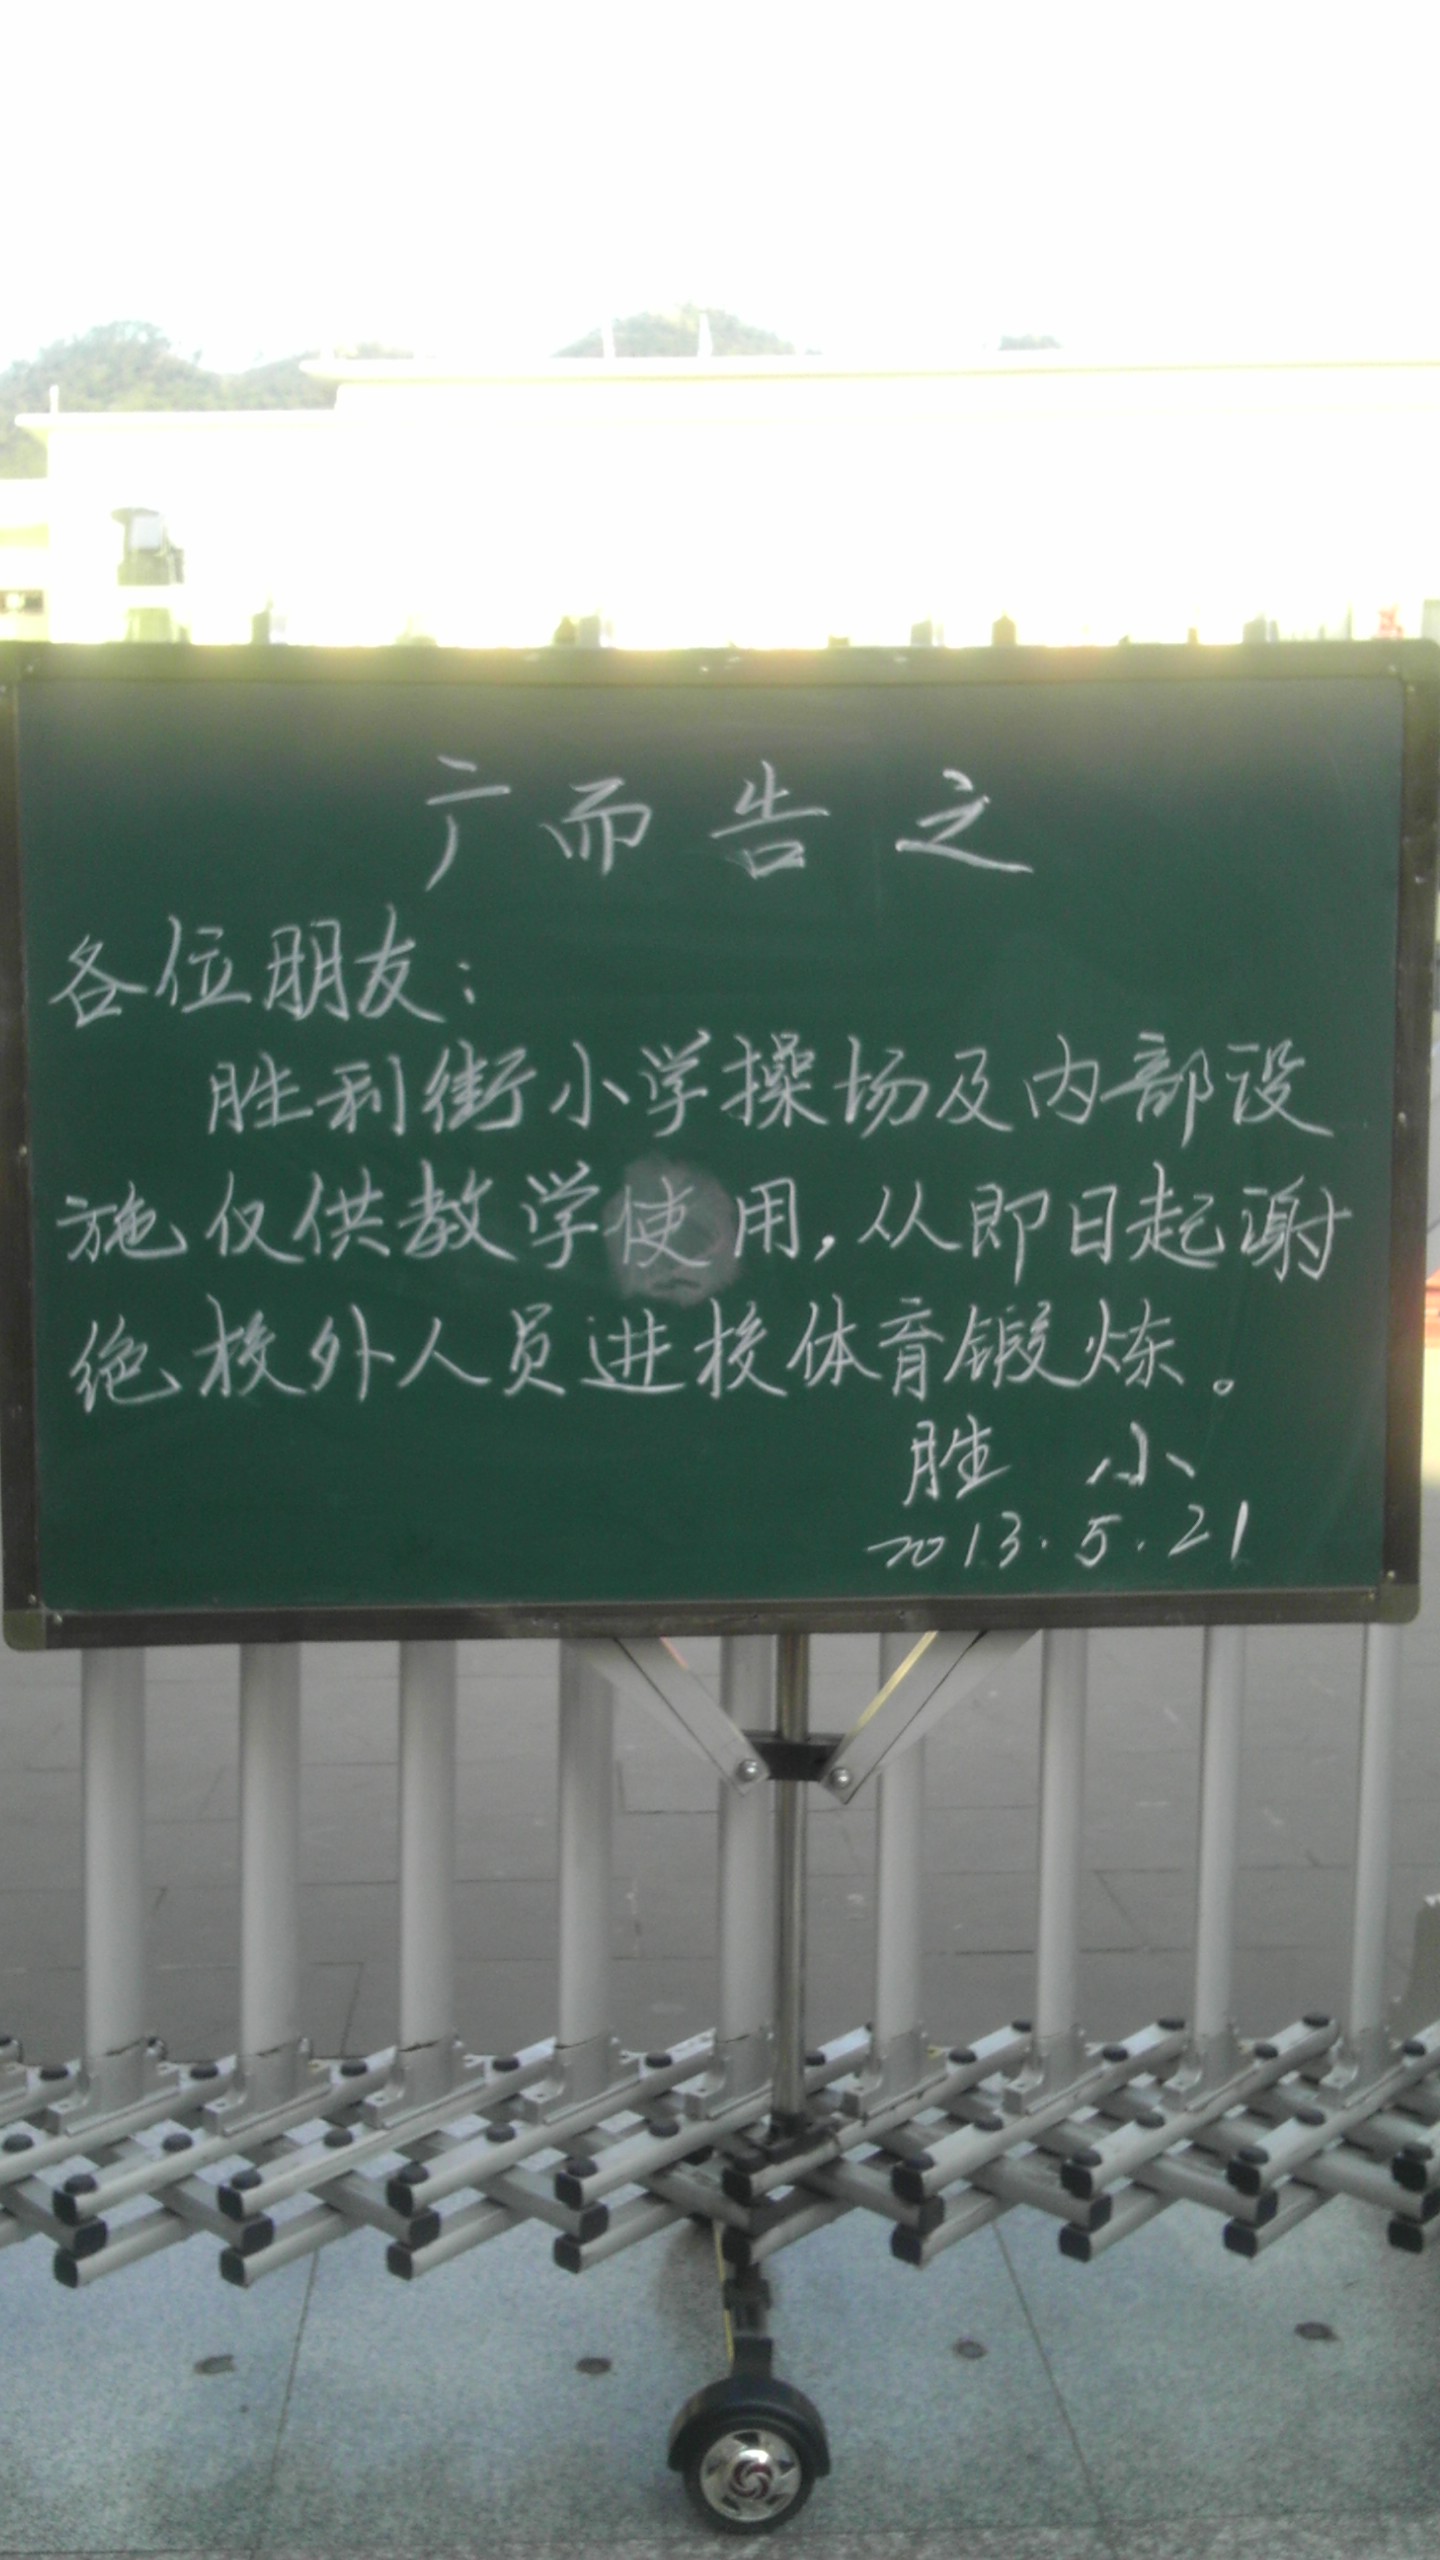 广而告之
各位朋友：
胜利街小学操场及内部设
施仅供教学使用，从即日起谢
绝校外人员进校体育锻炼。
胜 小
2013.5.21